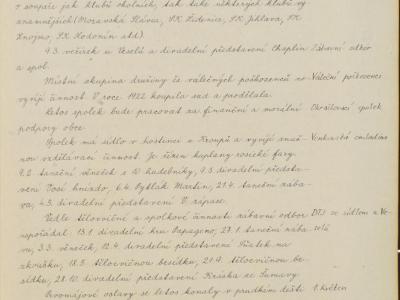 v soupeře jak klubů okolních, tak také některých klubů vý-
znamnějších (Moravská Slávia, SK Židenice, SK Jihlava, SK
Znojmo, SK Hodonín atd).
4.3. večírek u Veselů a divadelní představení Chaplin Zábavní odbor
a spol.
Místní skupina družiny čs válečných poškozenců ne- Váleční poškozenci
vyvíjí činnost. V roce 1922 koupila sad a prodělala.
Letos spolek bude pracovat za finanční a morální Okrašlovací spolek
podpory obce.
Spolek má sídlo v hostinci u Kroupů a vyvíjí znač- Venkovská omladina
nou vzdělávací činnost. Je řízen kaplany rosické fary.
9.2. taneční věneček u hudebníky, 9.3. divadelní předsta-
vení Tosí hnízdo, 6.4. Pytlák Martin, 21.4. taneční zába-
va, 4.3. divadelní představení V zápase.
Vedle tělocvičné a spolkové činnosti zábavní odbor DTJ se sídlem u Ve-
uspořádal, 13.1. divadelní hru Papageno, 27.1. taneční zába- selů
vu, 3.3. věneček, 12.4. divadelní představení Sňatek na
zkoušku, 18.5. tělocvičnou besídku, 21.4. tělocvičnou be-
sídku, 28.10. divadelní představení Kráska ze Šumavy.
Prvomájové oslavy se letos konaly v prudkém dešti 1. květen